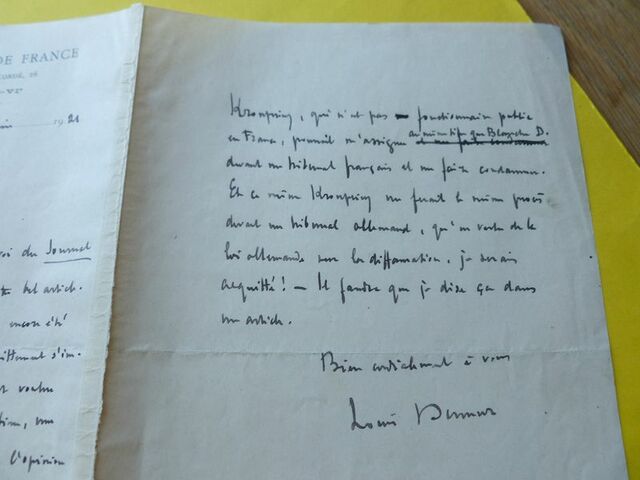 DE FRANCE
CONDÉ, 26
VIe
1921
oi du Journal
bel article.
encore été
s'im-
vouloir
tion, une
l'opinion
Kronprinz, qui n'est pas fonctionnaire public
au même titre que Blanche D.
en France, pourrait m'assigner et me faire condamner
devant un tribunal français et me faire condamner.
Et ce même Kronprinz me ferait le même procès
devant un tribunal allemand, qu'en vertu de la
loi allemande sur la diffamation, je serais
acquitté! — Il faudra que je dise ça dans
un article.
Bien cordialement à vous
Louis Dumur